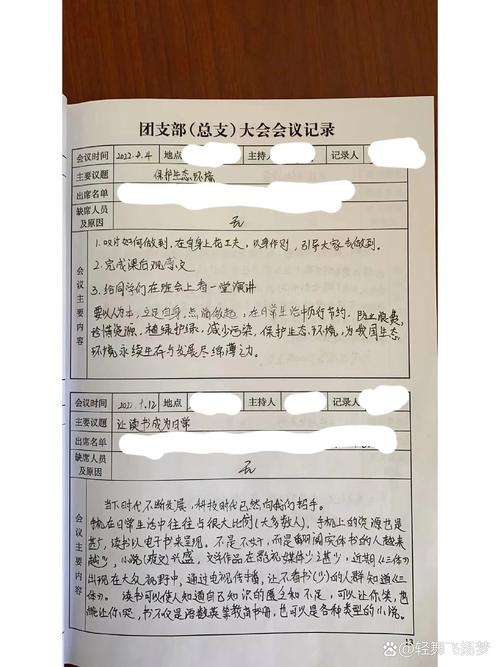 团支部（总支）大会会议记录
会议时间 2022.9.4 地点 主持人 记录人
主要议题 保护生态环境
出席名单
缺席人员及原因 无
会议主要内容
1.以讨如何做到,在自身上花工夫,以身作则,引导大家去做到。
2.完成课后观感文
3.给同学们在班会上一堂演讲
要以人为本,立足自身,点滴做起,在日常生活中厉行节约,防止浪费,
珍惜资源,植绿护绿,减少污染,保护生态环境,为我国生态
环境永续生存与发展尽绵薄之力。
会议时间 2022.9.12 地点 主持人 记录人
主要议题 让读书成为日常
出席名单
缺席人员及原因 无
会议主要内容
当下时代不断发展,科技时代已然向我们招手。
手机在日常生活中往往占很大比例(大多数人),手机上的资源也是
甚广,读书以电子书来呈现。不是不好,而是翻阅实体书的人越来
越少,小说(爽文)兴盛,文件作品在影视媒体少之甚少,近期《三体》
出现在大众视野中,通过电视传播,让不看书(少)的人群知道《三
体》。读书可以使人知道自己知识的匮乏和不足,可以让你笑,也
能让你哭,书不仅是语数英等教育书册,也可以是各种类型的小说。
13
百家号/轻舞飞扬梦